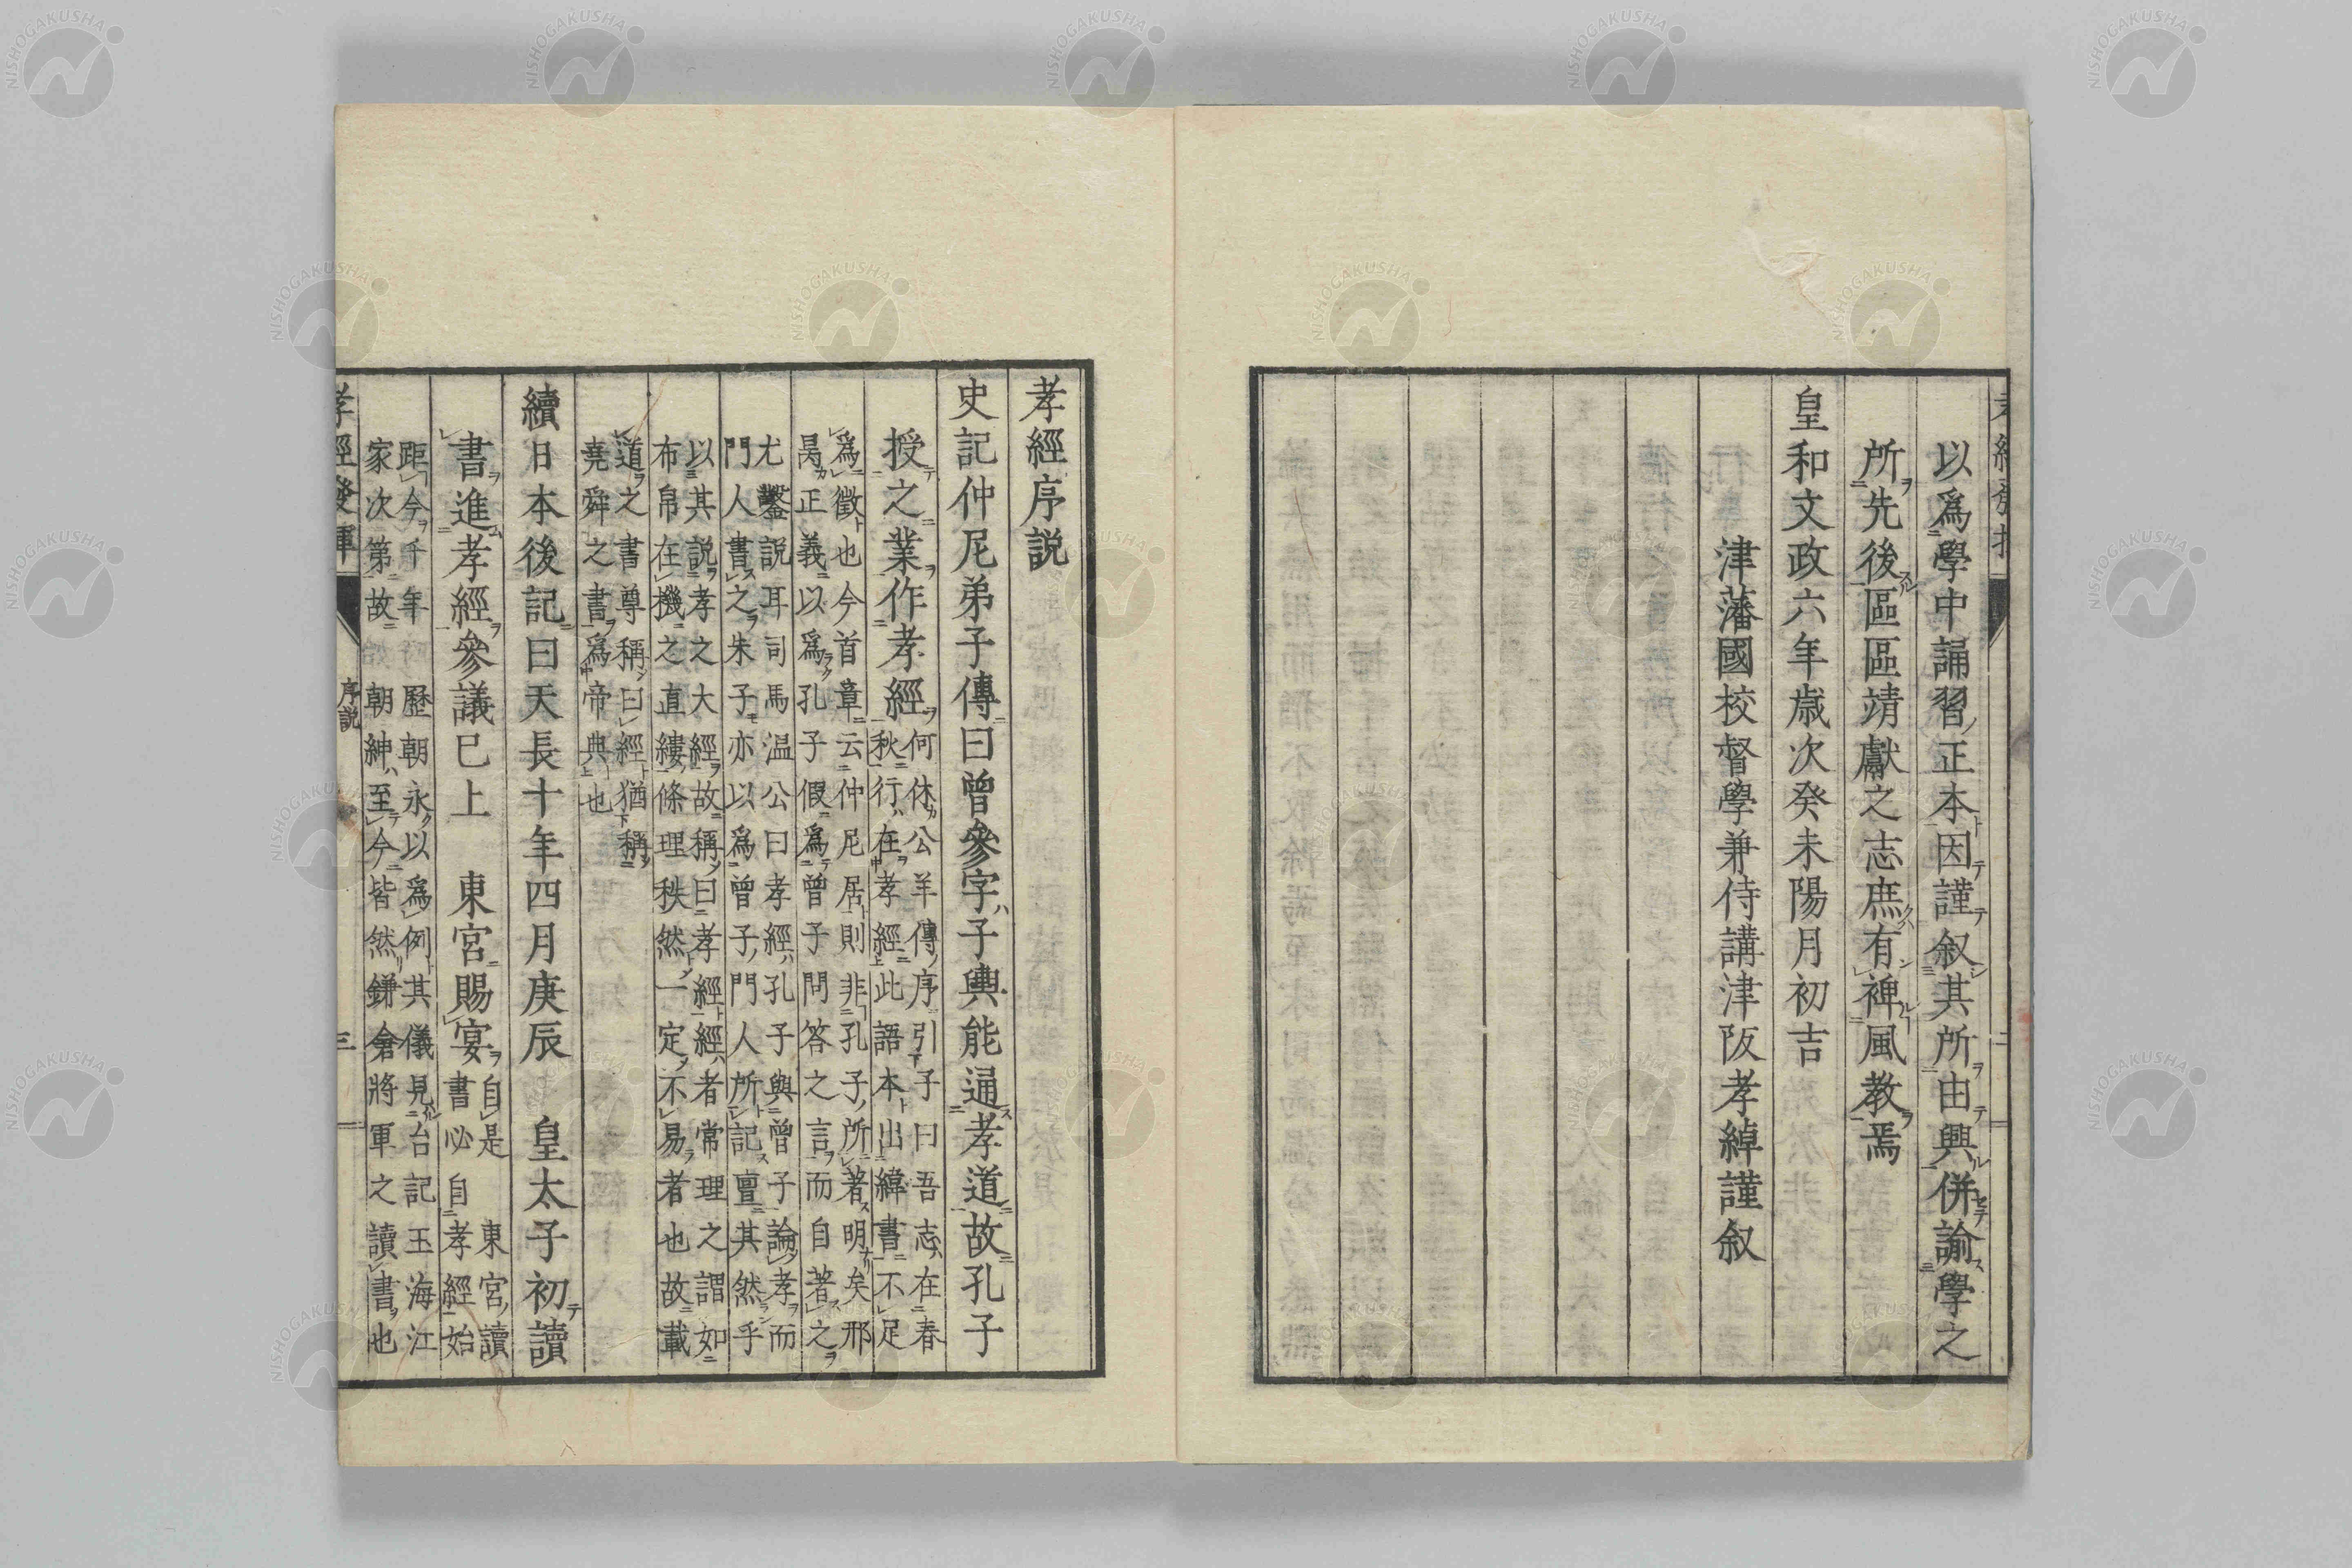 以爲學中誦習正本因謹叙其所由興併諭學之
所先後區區靖獻之志庶有裨風教焉
皇和文政六年歳次癸未陽月初吉
津藩國校督學兼侍講津阪孝綽謹叙
孝經序説
史記仲尼弟子傳曰曾參字子輿能通孝道故孔子
授之業作孝經
何休公羊傳序引子曰吾志在春
秋行在孝經此語本出緯書不足
爲徴也今首章云仲尼居則非孔子所著明矣邢
昺正義以爲孔子假爲曾子問答之言而自著之
尤鑿説耳司馬温公曰孝經孔子與曾子論孝而
門人書之朱子亦以爲曾子門人所記亶其然乎
以其説孝之大經故稱曰孝經經者常理之謂如
布帛在機之直縷條理秩然一定不易者也故載
道之書尊稱曰經猶稱
堯舜之書爲帝典也
續日本後記曰天長十年四月庚辰 皇太子初讀
書進孝經參議已上 東宮賜宴
自是 東宮讀
書必自孝經始
距今千年 歷朝永以爲例其儀見台記玉海江
家次第故 朝紳至今皆然鎌倉將軍之讀書也
孝經發揮 序説 三
NISHOGAKUSHA